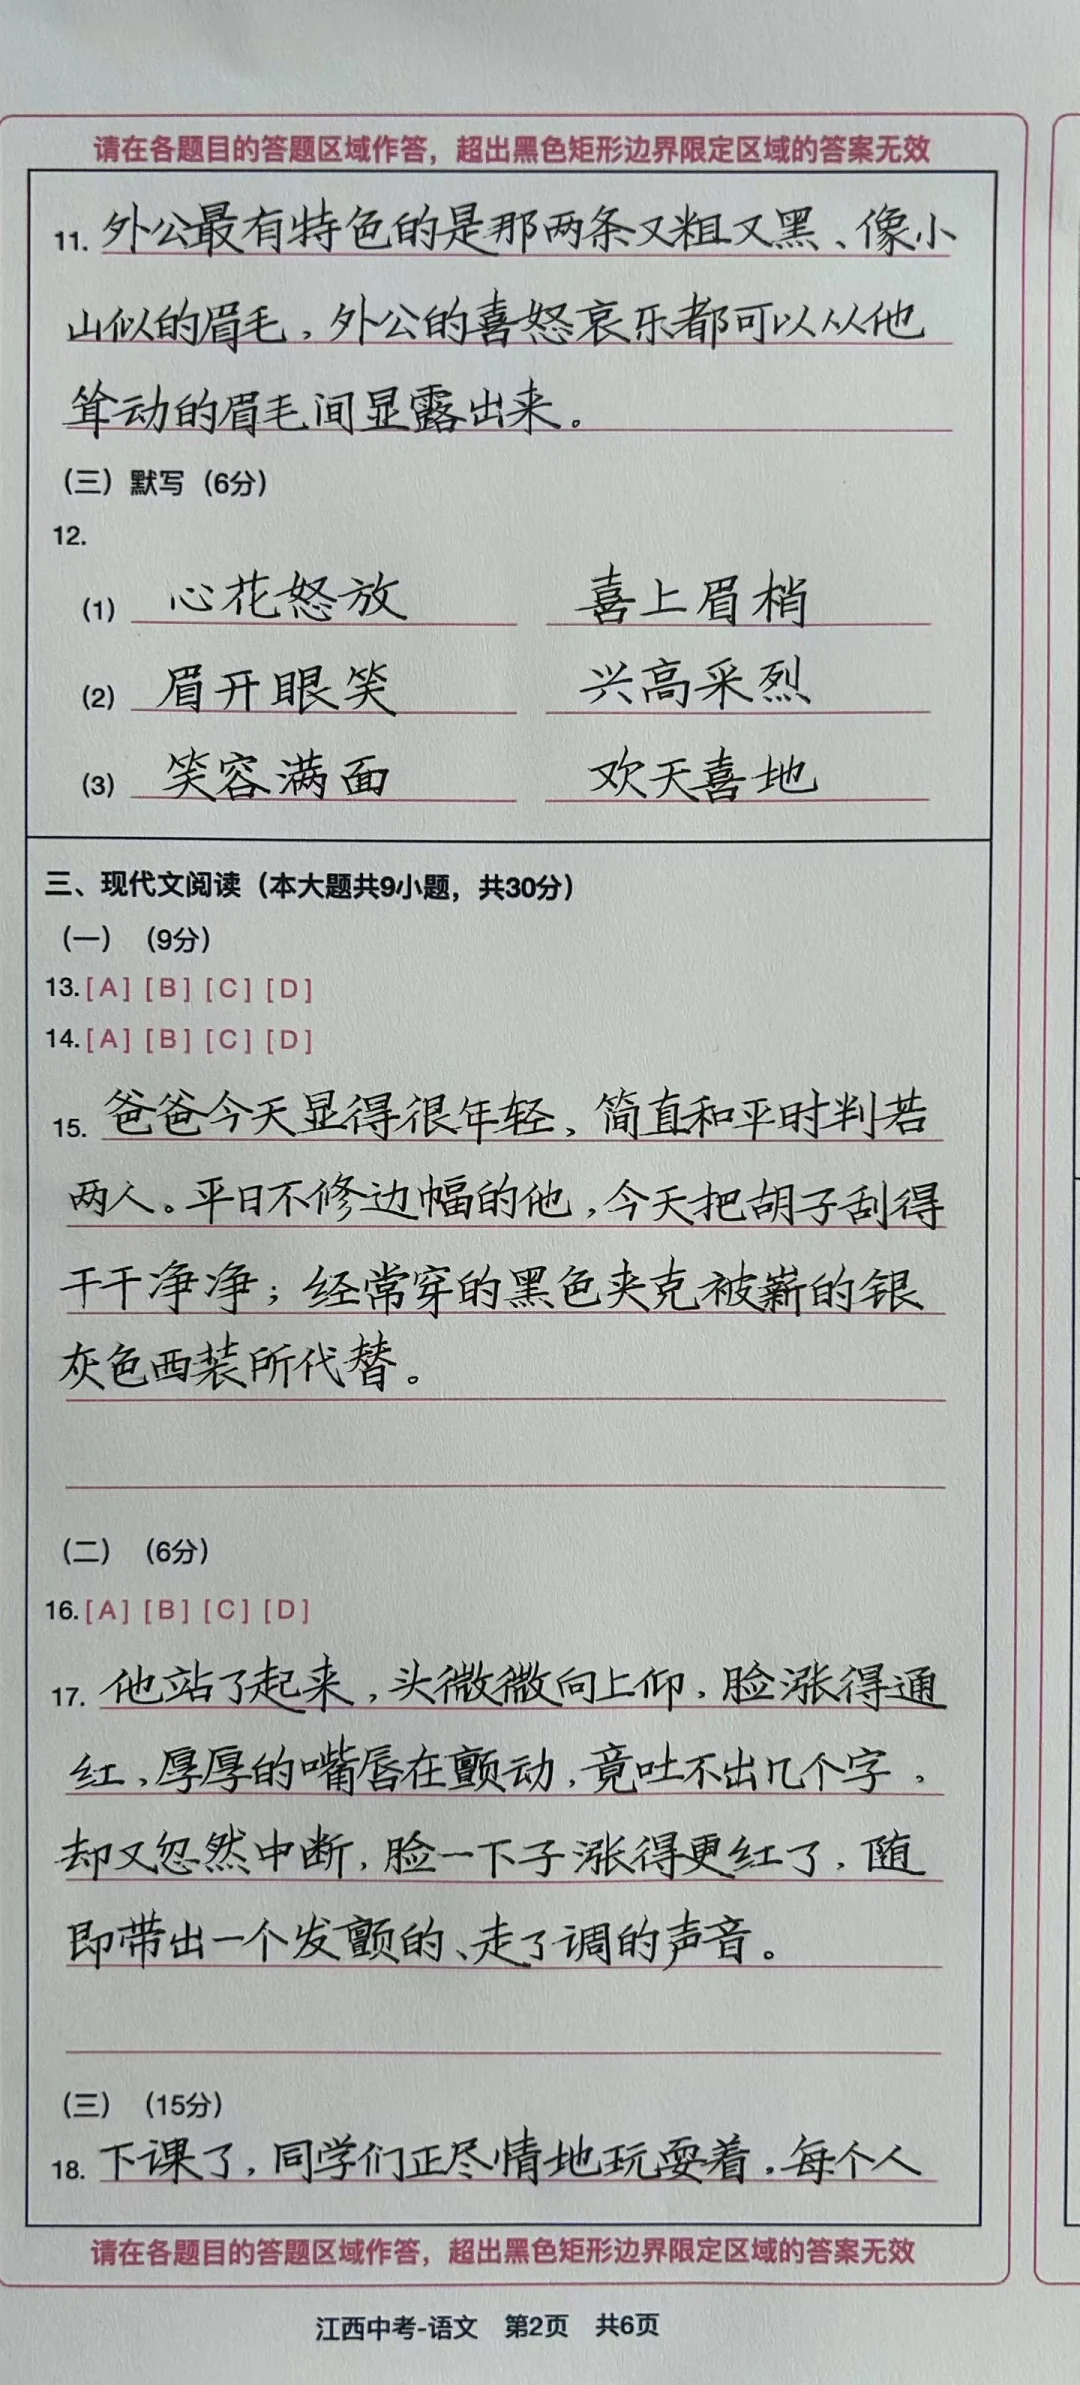 请在各题目的答题区域作答，超出黑色矩形边界限定区域的答案无效
11. 外公最有特色的是那两条又粗又黑、像小
山似的眉毛，外公的喜怒哀乐都可以从他
耸动的眉毛间显露出来。
（三）默写（6分）
12.
(1) 心花怒放 喜上眉梢
(2) 眉开眼笑 兴高采烈
(3) 笑容满面 欢天喜地
三、现代文阅读（本大题共9小题，共30分）
（一）（9分）
13.[A] [B] [C] [D]
14.[A] [B] [C] [D]
15. 爸爸今天显得很年轻，简直和平时判若
两人。平日不修边幅的他，今天把胡子刮得
干干净净；经常穿的黑色夹克被崭的银
灰色西装所代替。
（二）（6分）
16.[A] [B] [C] [D]
17. 他站了起来，头微微向上仰，脸涨得通
红，厚厚的嘴唇在颤动，竟吐不出几个字，
却又忽然中断，脸一下子涨得更红了，随
即带出一个发颤的、走了调的声音。
（三）（15分）
18. 下课了，同学们正尽情地玩耍着，每个人
请在各题目的答题区域作答，超出黑色矩形边界限定区域的答案无效
江西中考-语文 第2页 共6页